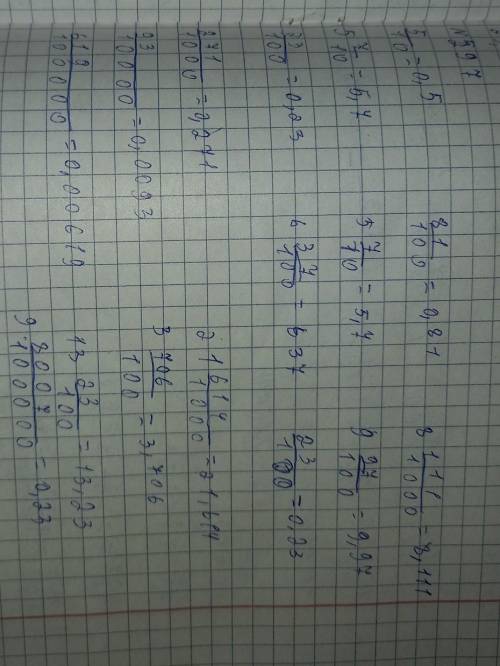 № 897
5/10 = 0,5   81/100 = 0,81   8 111/1000 = 8,111
5 7/10 = 5,7   5 7/10 = 5,7   9 97/100 = 9,97
23/100 = 0,23   6 37/100 = 637   23/100 = 0,23
271/1000 = 0,271   21 614/1000 = 21,614
93/10000 = 0,0093   3 706/100 = 3,706
619/100000 = 0,00619   13 23/100 = 13,23
9 8007/100000 = 0,23